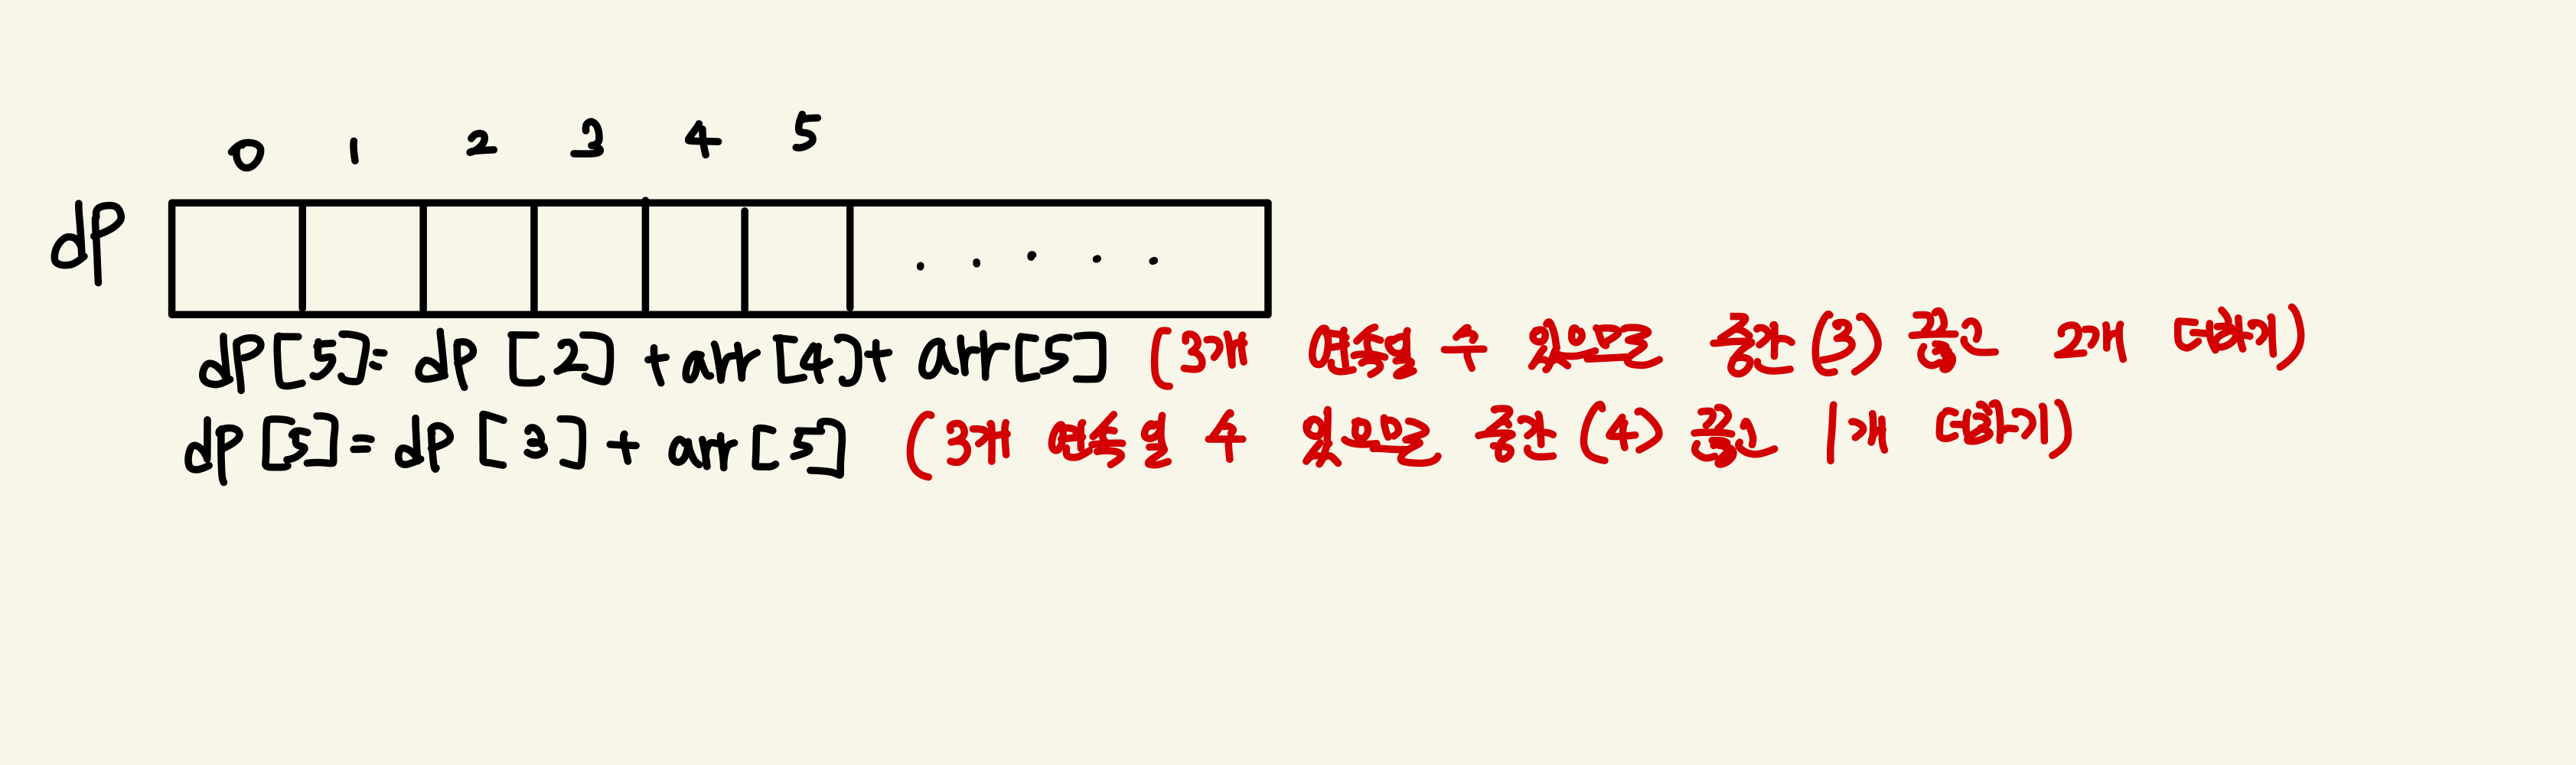 0 1 2 3 4 5
dp
. . . . .
dp[5]= dp [2] +arr[4]+ arr[5] (3개 연속일 수 있으므로 중간(3) 끊고 2개 더하기)
dp[5]= dp[3] + arr[5] (3개 연속일 수 있으므로 중간(4) 끊고 1개 더하기)